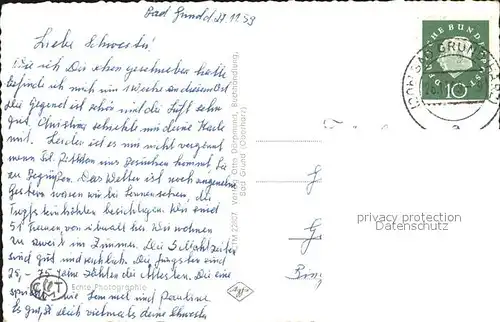 Bad Grund d. 27.11.59
Liebe Schwester!
Wie ich Dir schon geschrieben hatte
befinde ich mich um 1 Woche an diesem Ort
die Gegend ist schön und die Luft sehr
gut. Christine schickte mir deine Karte
mit. Leider ist es mir nicht vergönnt
wenn Frl. kommt, Sie
zu begrüßen. Das Wetter ist noch angenehm
Gestern waren wir bei Sonnenschein, die
Tropfsteinhöhlen besichtigen. Wir sind
51 Frauen von überall her. Wir wohnen
zu zweit im Zimmer. Die Mahlzeiten
sind gut und reichlich. Die jüngsten sind
25, - 75 Jahre zählen die Ältesten. Die eine
wie Semmel und Pauline
Es grüßt dich vielmals deine Schwester
TM 22507 Verlag Otto Dörgmund, Buchhandlung,
Bad Grund (Oberharz)
C T
Echte Photographie
Agfa
DEUTSCHE BUNDESPOST
10
BAD GRUND
G
G
privacy protection
Datenschutz